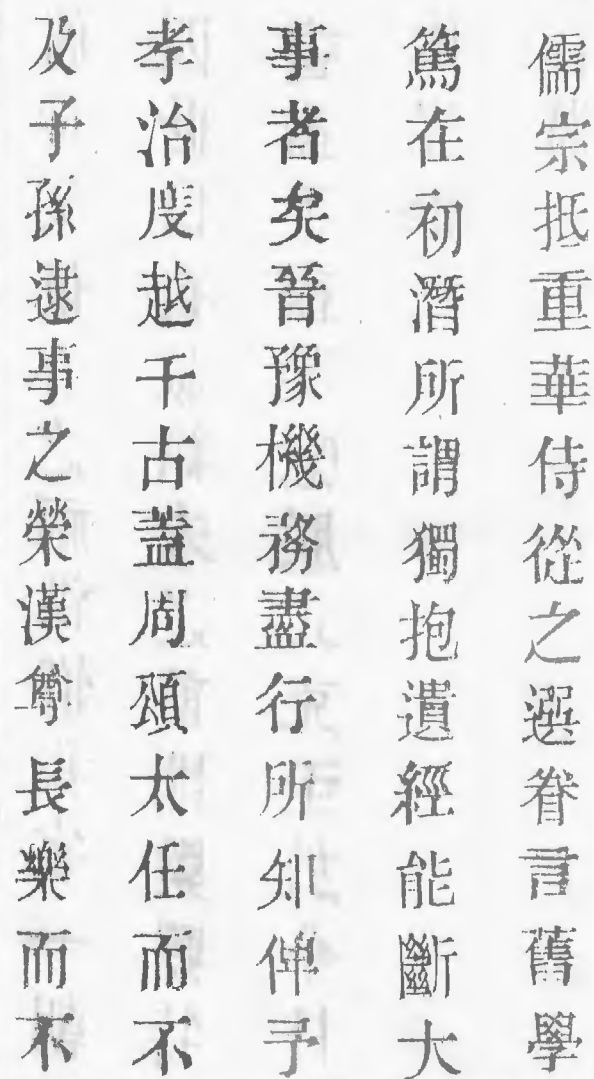 儒宗抵重華侍從之選眷言舊學
篤在初潛所謂獨抱遺經能斷大
事者矣晉豫機務盡行所知俾予
孝治度越千古蓋周頌太任而不
及子孫逮事之榮漢尊長樂而不